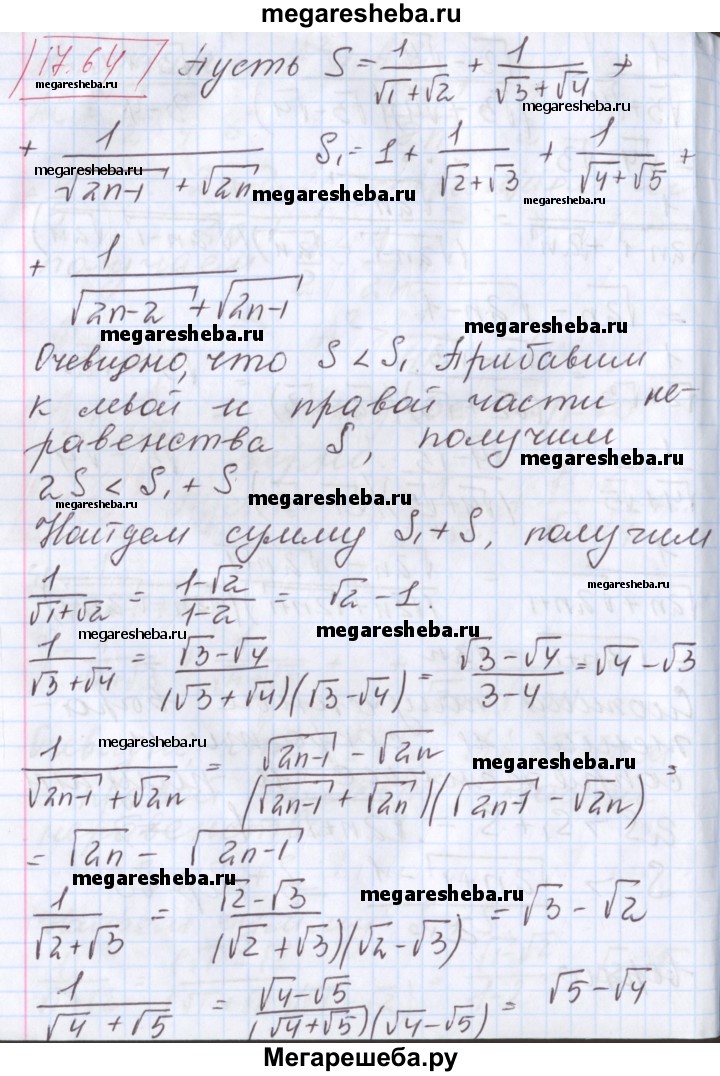 megaresheba.ru
17.64 Пусть S = 1/(√1+√2) + 1/(√3+√4) +
megaresheba.ru
megaresheba.ru
+ 1/(√2n-1 + √2n) S₁ = 1 + 1/(√2+√3) + 1/(√4+√5) +
megaresheba.ru
megaresheba.ru
megaresheba.ru
+ 1/(√2n-2 + √2n-1)
megaresheba.ru
megaresheba.ru
Очевидно, что S < S₁ Прибавим
к левой и правой части не-
равенства S, получим
megaresheba.ru
2S < S₁ + S
megaresheba.ru
megaresheba.ru
Найдем сумму S₁ + S, получим
1/(√1+√2) = (1-√2)/(1-2) = √2 - 1.
megaresheba.ru
megaresheba.ru
megaresheba.ru
1/(√3+√4) = (√3-√4)/((√3+√4)(√3-√4)) = (√3-√4)/(3-4) = √4 - √3
megaresheba.ru
megaresheba.ru
1/(√2n-1 + √2n) = (√2n-1 - √2n)/((√2n-1 + √2n)(√2n-1 - √2n)) =
= √2n - √2n-1
megaresheba.ru
megaresheba.ru
1/(√2+√3) = (√2-√3)/((√2+√3)(√2-√3)) = √3 - √2
1/(√4+√5) = (√4-√5)/((√4+√5)(√4-√5)) = √5 - √4
Мегарешеба.ру